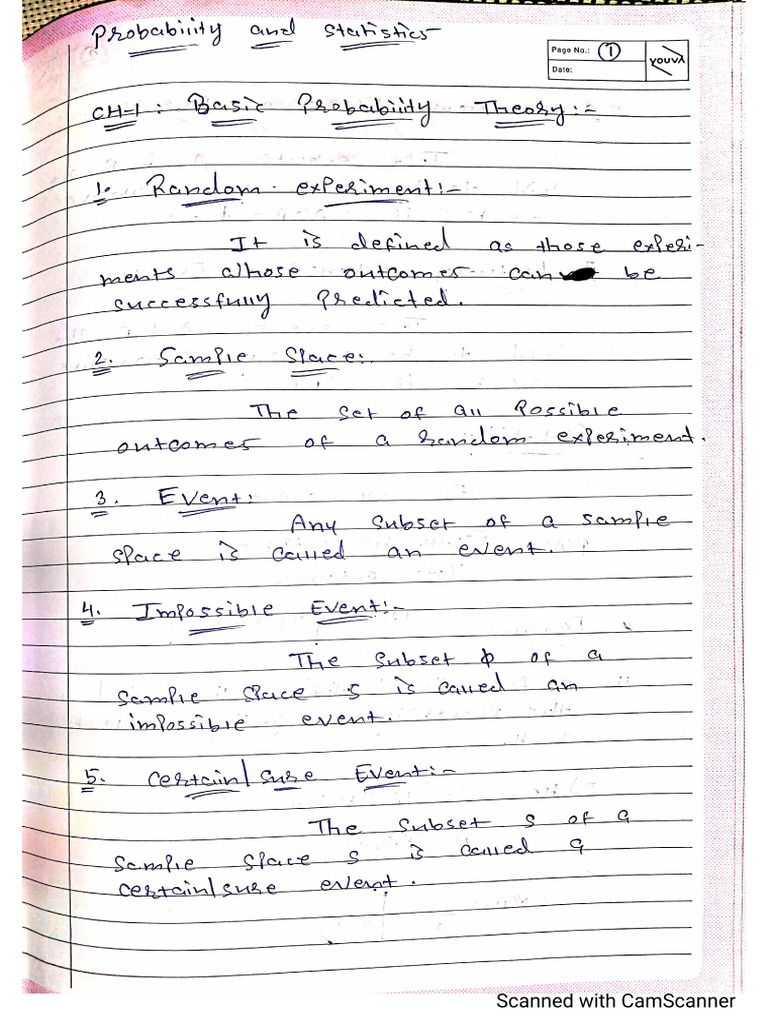 Probability and statistics
Page No.: 1
Date:
youva
CH-1: Basic Probability Theory:-
1. Random experiment:-
It is defined as those experi-
ments whose outcomes can be
successfully Predicted.
2. Sample Space:
The set of all Possible
outcomes of a random experiment.
3. Event:
Any subset of a sample
space is called an event.
4. Impossible Event:-
The subset ϕ of a
sample space s is called an
impossible event.
5. Certain/sure Event:-
The subset s of a
sample space s is called a
certain/sure event.
Scanned with CamScanner